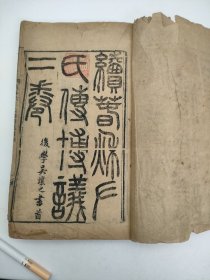 續春秋左
氏傳博議
二卷
後學吳攘之書首